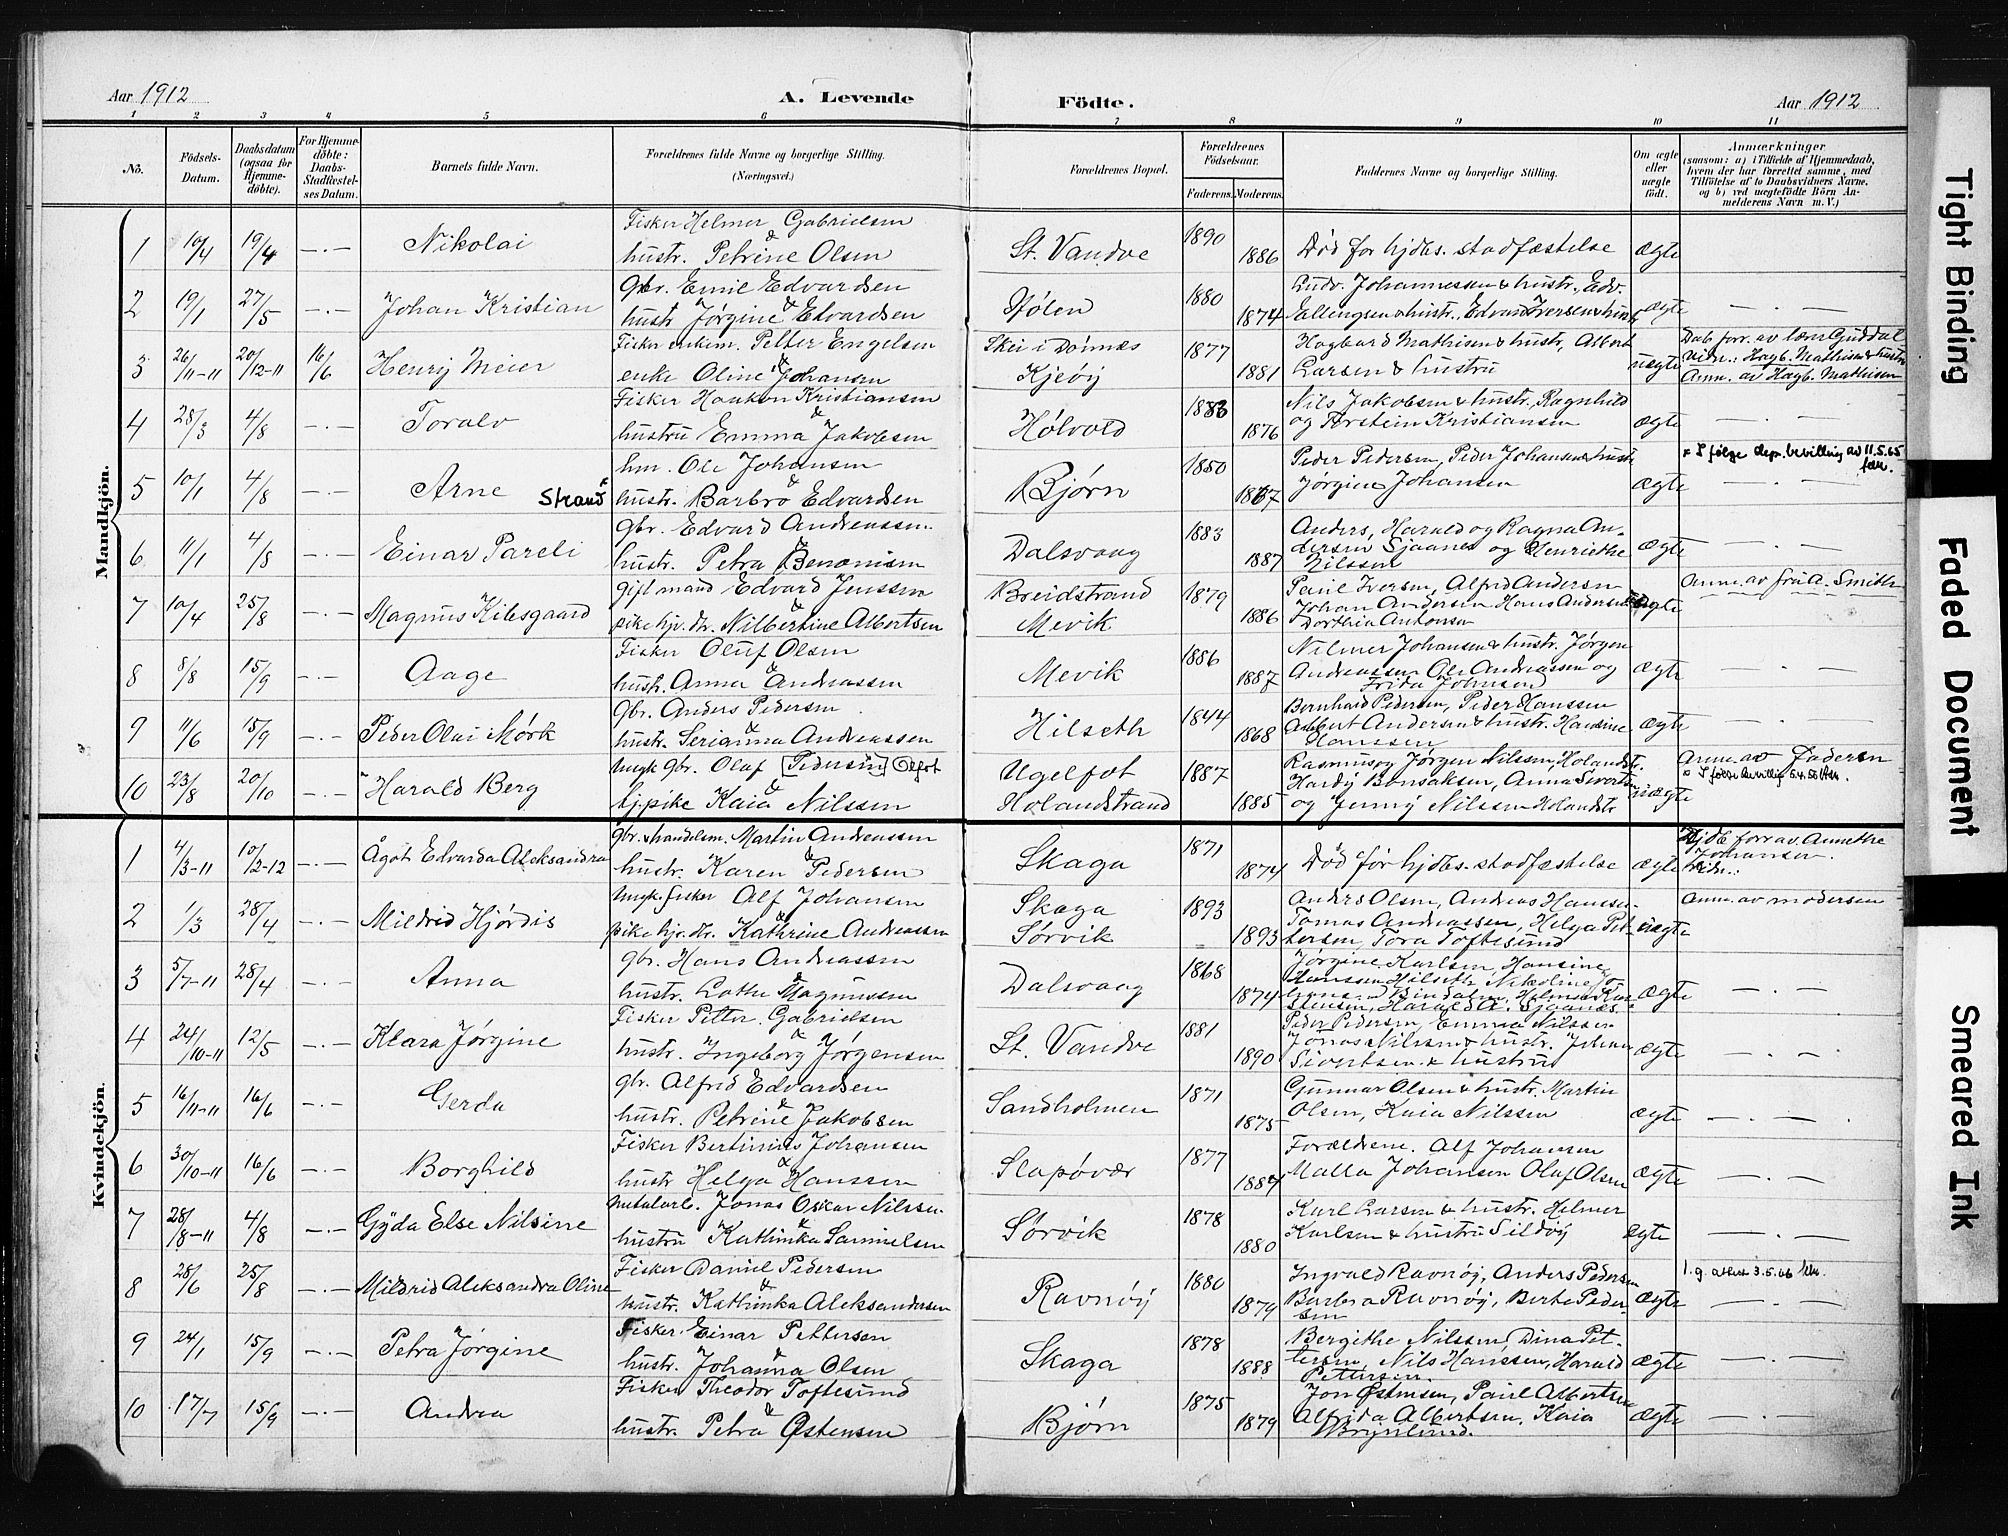 Aar 1912 A. Levende Födte. Aar 1912
1 2 3 4 5 6 7 8 9 10 11
No. Födsels-Datum. Daabsdatum (ogsaa for Hjemmedöbte). For Hjemmedöbte: Daabs-Stadfæstelses Datum. Barnets fulde Navn. Forældrenes fulde Navne og borgerlige Stilling. (Næringsvei.) Forældrenes Bopæl. Forældrenes Födselsaar. Faderens. Moderens. Faddernes Navne og borgerlige Stilling. Om ægte eller uægte født. Anmærkninger (saasom: a) i Tilfælde af Hjemmedaab, hvem der har forrettet samme, med Tilföielse af to Daabsvidners Navne, og b) ved uægtefödte Börn Anmelderens Navn m. V.)
Mandkjön.
1 10/4 19/4 —·— Nikolai Fisker Helmer Gabrielsen & hustr. Petrine Olsen St. Vandve 1890 1886 Død før hjdbs. stadfæstelse ægte
2 19/1 27/5 —·— Johan Kristian gbr. Emil Edvardsen & hustr Jørgine Edvardsen Stölen 1880 1874 Ludv. Johannessen & hustr., Edv. Ellingsen & hustr., Edvard Iversen & hustr ægte —·—
3 26/11-11 20/12-11 16/6 Henry Meier Fisker enkem. Petter Engelsen & enke Oline Johansen Skei i Dönnæs Kjeöy 1877 1881 Hagbard Mathisen & hustr, Albert Larsen & hustru uægte Dab forr. av lærer Guddal vidn.: Hagb. Mathisen & hustru Anm. av Hagb. Mathisen
4 28/3 4/8 —·— Toralv Fisker Haakon Kristiansen & hustru Emma Jakobsen Hölvold 1883 1876 Nils Jakobsen & hustr, Ragnhild og Torstein Kristiansen ægte —·—
5 10/1 4/8 —·— Arne Strand × hm. Ole Johansen & hustr. Barbro Edvardsen Bjørn 1850 1867 Peder Pedersen, Peder Johansen & hustr Jørgine Johansen ægte × I følge dep. bevilling av 11.5.65 —·—
6 11/1 4/8 —·— Einar Pareli gbr. Edvard Andreassen & hustr. Petra Benonisen Dalsvaag 1883 1887 Anders, Harald og Ragna Andersen Sjaanes og Henriethe Nilssen ægte —·—
7 10/4 25/8 —·— Magnus Kilsgaard gift mand Edvard Jenssen & pike hjv. dr. Nilbertine Albertsen Breidstrand Mevik 1879 1886 Paul Iversen, Alfred Andersen Johan Andersen Hans Andersen Dorthia Antonsen uægte Anm. av fru A. Smith
8 8/8 15/9 —·— Aage Fisker Oluf Olsen & hustr. Anna Andreassen Mevik 1886 1887 Nilmer Johansen & hustr. Jørgen Andreassen Ole Andreassen og Frida Johnsen ægte —·—
9 11/6 15/9 —·— Peder Olai Mörk Gbr. Anders Pedersen & hustr. Serianna Andreassen Hilseth 1844 1868 Bernhard Pedersen, Peder Hanssen Albert Andersen & hustr. Hansine Hanssen ægte —·—
10 23/8 20/10 —·— Harald Berg Ungk gbr. Olaf [Pedersen] Olfot & tj. pike Kaia Nilssen Ugelfot Holandstrand 1887 1885 Rasmus og Jørgen Nilssen Holandst. Hardy Bonsaksen, Anna Sivertsen og Jenny Nilssen Holandstr uægte Anm. av Faderen × I følge bevillig 5.4.55
Kvindekjön.
1 4/3-11 10/2-12 —·— Ågot Edvarda Aleksandra gbr. & handelsm. Martin Andreassen & hustr. Karen Pedersen Skaga 1871 1874 Død før hjdbs. stadfæstelse ægte Hjdb forr av Annethe Johansen. vidn.:
2 1/3 28/4 —·— Mildrid Hjördis Ungk. fisker Alf Johansen & pike hjv. dr. Kathrine Andreassen Skaga Sørvik 1893 1893 Anders Olsen, Andreas Hanssen Tomas Andreassen, Helga Pettersen, Tora Toftesund uægte Anm. av moderen
3 5/7-11 28/4 —·— Anna gbr. Hans Andreassen & hustr. Lothe Magnussen Dalsvaag 1868 1874 Jørgine Karlsen, Hansine Hanssen Hilseth Nikoline Bindalen, Helmer Harald A. Sjaanæs ægte —·—
4 24/10-11 12/5 —·— Klara Jørgine Fisker Petter Gabrielsen & hustr. Ingeborg Jørgensen St. Vandve 1881 1890 Peder Pedersen, Emma Nilssen Jonas Nilssen & hustr. Johan Sivertsen & hustru ægte —·—
5 16/11-11 16/6 —·— Gerda gbr. Alfred Edvardsen & hustr. Petrine Jakobsen Sandholmen 1871 1875 Gunnar Olsen & hustr. Martin Olsen, Kaia Nilssen ægte —·—
6 30/10-11 16/6 —·— Borghild Fisker Bertinius Johansen & hustr Helga Hanssen Slapövær 1877 1884 Forældrene. Alf Johansen Malla Johansen Olaf Olsen ægte —·—
7 28/8-11 4/8 —·— Gyda Else Nilsine metalarb. Jonas Oskar Nilssen & hustru Kathinka Samuelsen Sørvik 1878 1880 Karl Larsen & hustr. Helmer Karlsen & hustru Sildöy ægte —·—
8 28/6 25/8 —·— Mildrid Aleksandra Oline Fisker Daniel Pedersen & hustr. Kathinka Aleksandersen Ravnöy 1880 1879 Ingvald Ravnöy, Anders Pedersen Barbra Ravnöy, Berte Pedersen ægte l. g. attest 3.5.66 —·—
9 24/1 15/9 —·— Petra Jørgine Fisker Einar Pettersen & hustr. Johanna Olsen Skaga 1878 1888 Bergithe Nilssen, Dina Pettersen, Nils Hanssen, Harald Pettersen. ægte —·—
10 17/7 15/9 —·— Andrea Fisker Theodor Toftesund & hustr. Petra Østensen Bjørn 1875 1879 Jon Østensen, Paul Albertsen Alfrida Albertsen, Kaia Brynlund. ægte —·—
Tight Binding
Faded Document
Smeared Ink